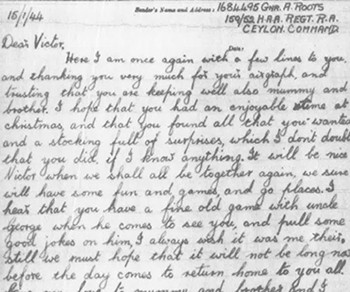 15/1/44
Sender's Name and Address: 1684495 GNR. A. ROOTS
159/52 H.A.A. REGT. R.A.
CEYLON COMMAND
Date:
Dear Victor,
Here I am once again with a few lines to you,
and thanking you very much for your airgraph, and
trusting that you are keeping well also mummy and
brother. I hope that you had an enjoyable time at
christmas, and that you found all that you wanted
and a stocking full of surprises, which I don't doubt
that you did, if I know anything. It will be nice
Victor when we shall all be together again, we sure
will have some fun and games, and go places. I
hear that you have a fine old game with uncle
george when he comes to see you, and pull some
good jokes on him, I always wish it was me their,
still we must hope that it will not be long now
before the day comes to return home to you all.
love to mummy and brother and I